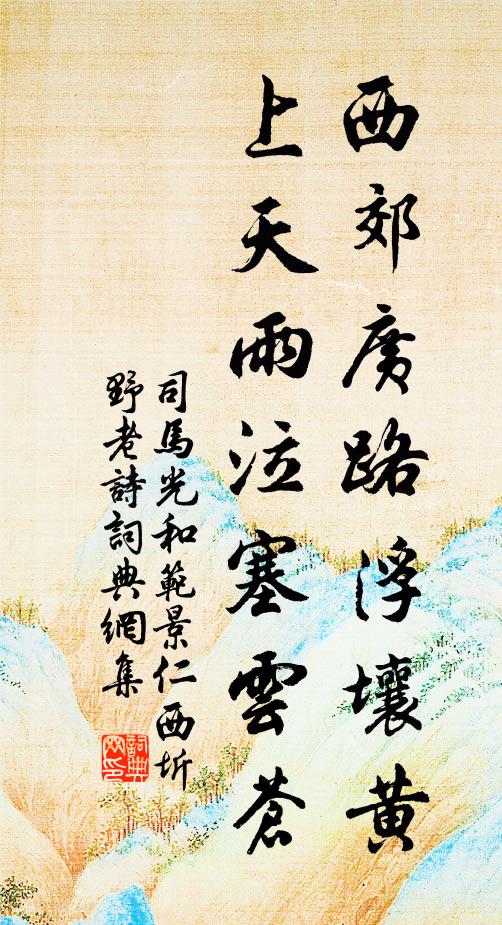 西郊廣路浮壤黃
上天雨泣塞雲蒼
司馬光和範景仁西圻
野老詩詞典網集
詞典